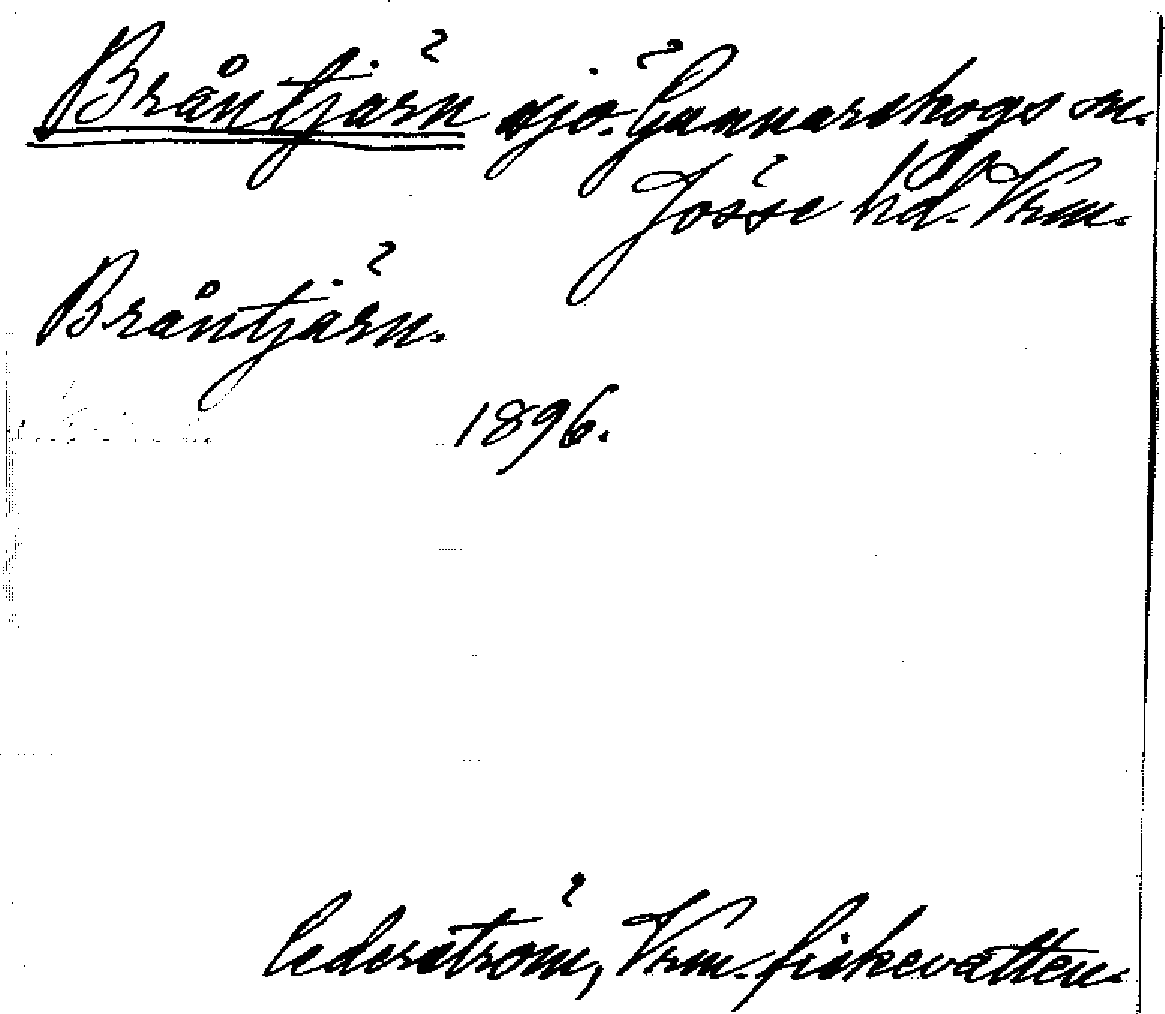 Bråntjärn sjö. Gunnarskogs sn.
Jösse hd. Vrm.
Bråntjärn.
1896.
Cederström, Vrm. fiskevatten.